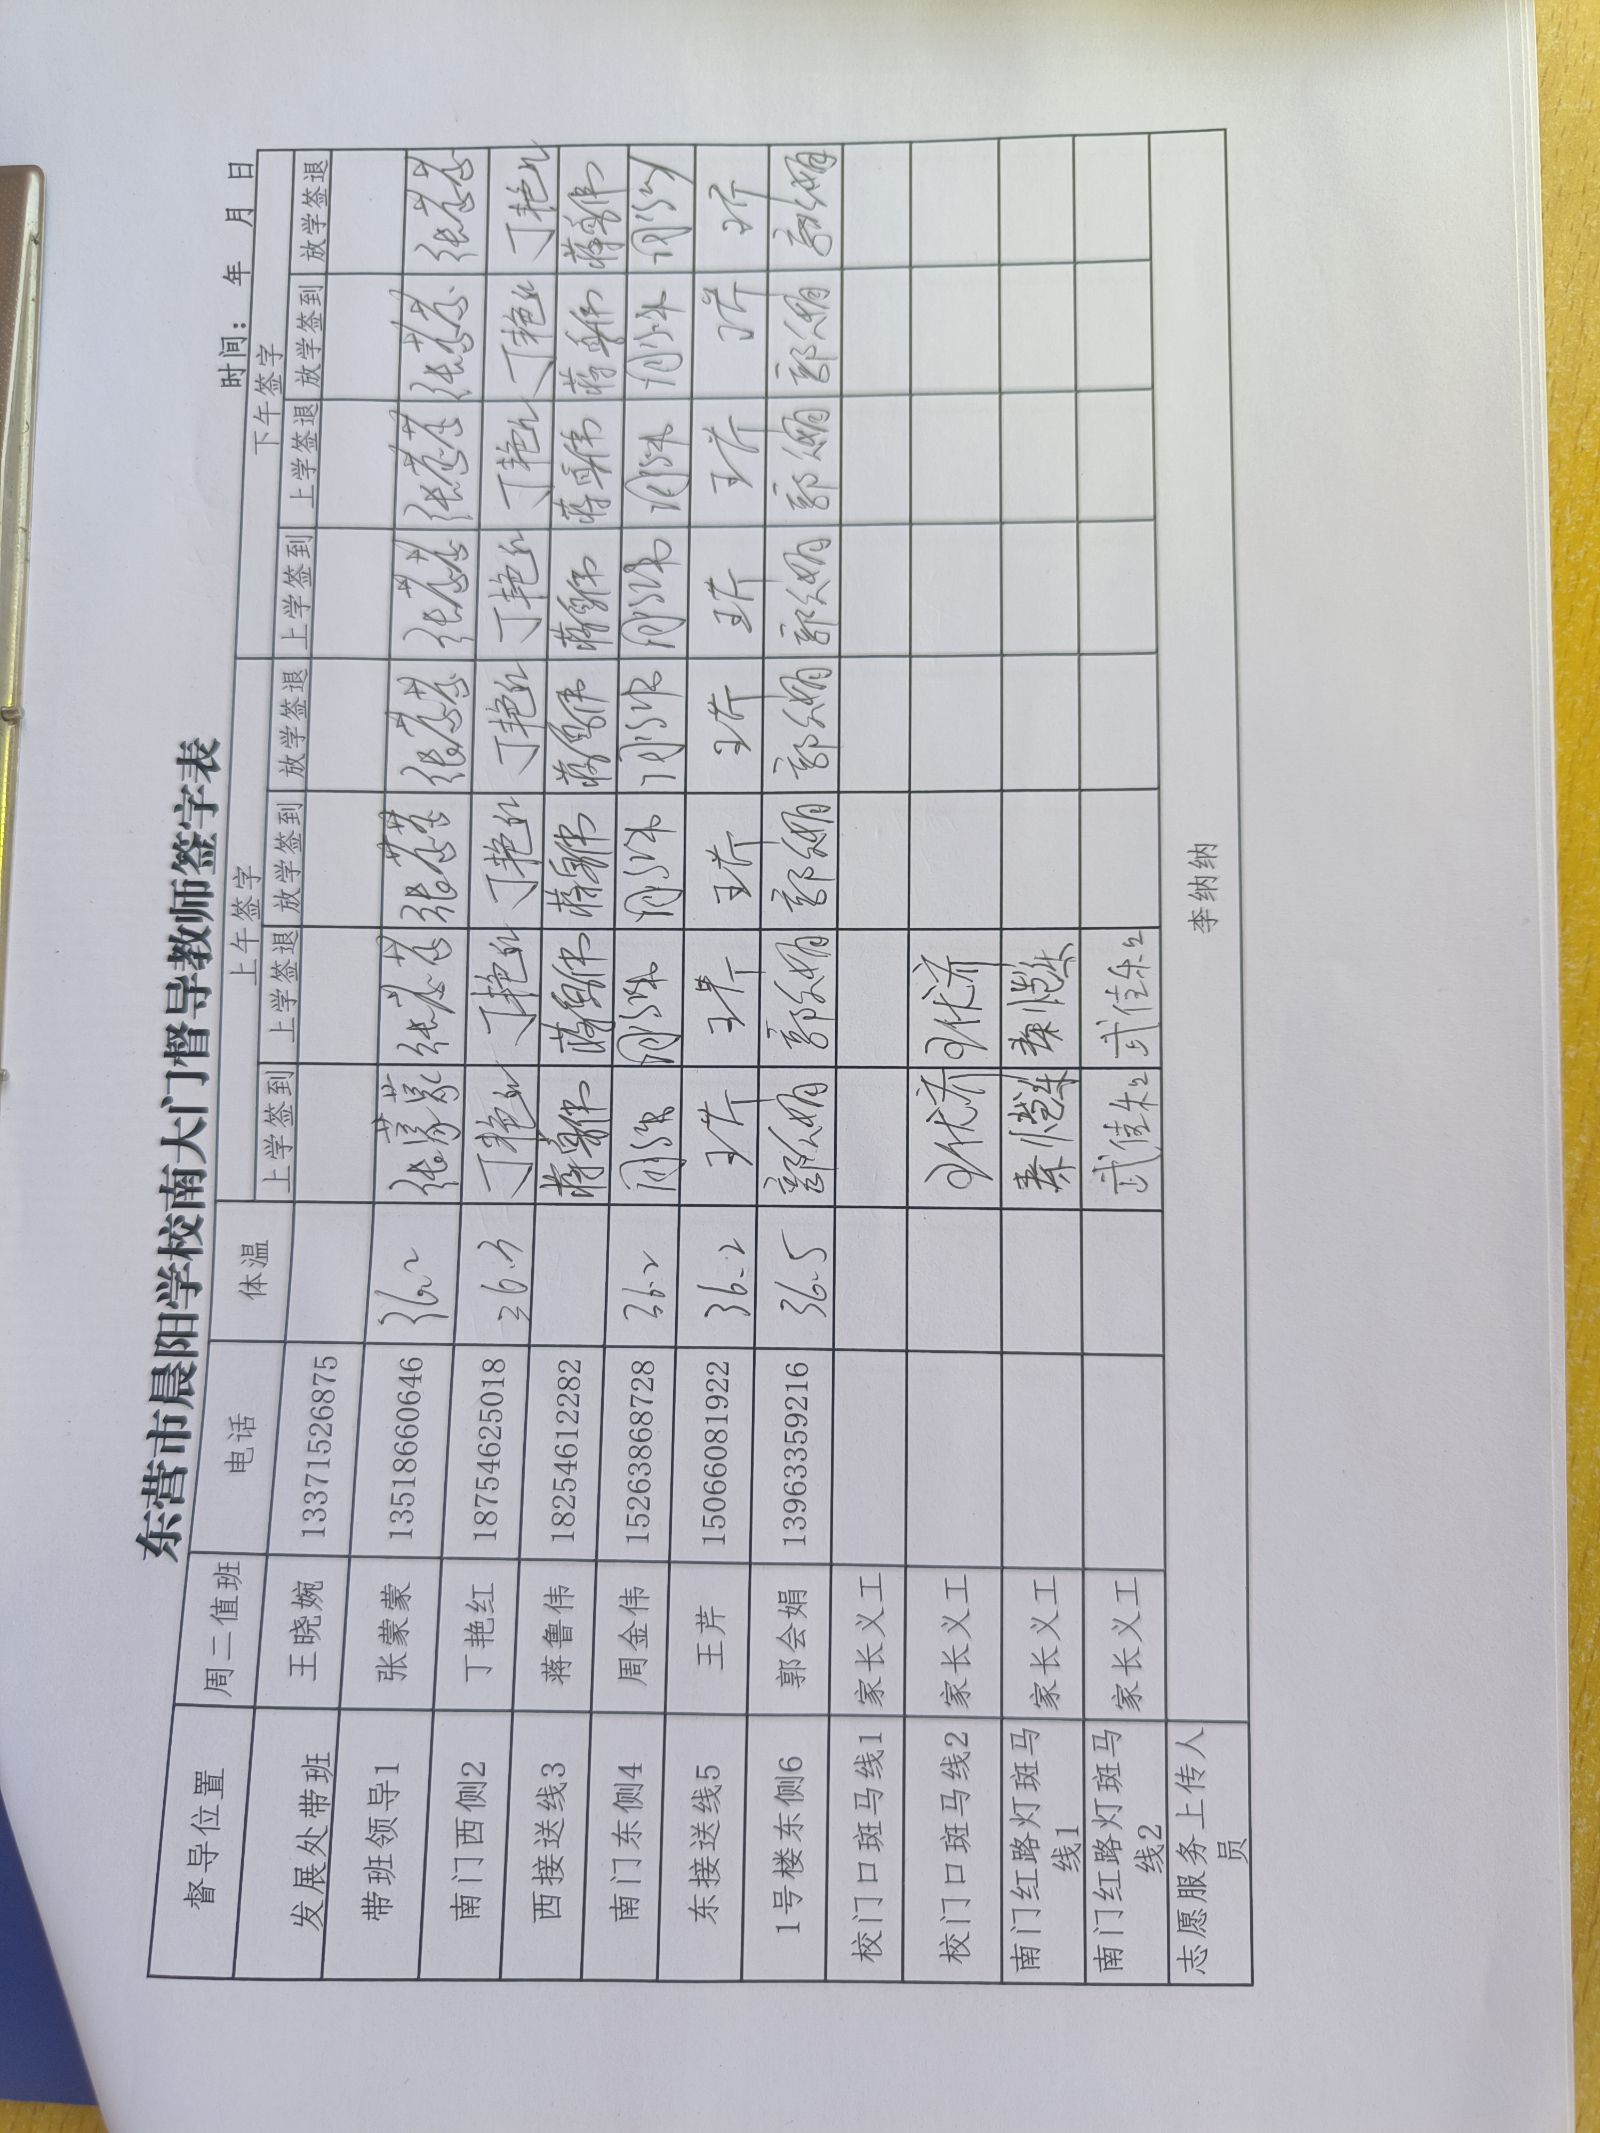 东营市晨阳学校南大门督导教师签字表
时间： 年 月 日
督导位置 周二值班 电话 体温 上午签字 下午签字
上学签到 上学签退 放学签到 放学签退 上学签到 上学签退 放学签到 放学签退
发展处带班 王晓婉 13371526875
带班领导1 张蒙蒙 13518660646 36.2 张蒙蒙 张蒙蒙 张蒙蒙 张蒙蒙 张蒙蒙 张蒙蒙 张蒙蒙 张蒙蒙
南门西侧2 丁艳红 18754625018 36.3 丁艳红 丁艳红 丁艳红 丁艳红 丁艳红 丁艳红 丁艳红 丁艳红
西接送线3 蒋鲁伟 18254612282 蒋鲁伟 蒋鲁伟 蒋鲁伟 蒋鲁伟 蒋鲁伟 蒋鲁伟 蒋鲁伟 蒋鲁伟
南门东侧4 周金伟 15263868728 36.2
东接送线5 王芹 15066081922 36.2 王芹 王芹 王芹 王芹 王芹 王芹 王芹 王芹
1号楼东侧6 郭会娟 13963359216 36.5 郭会娟 郭会娟 郭会娟 郭会娟 郭会娟 郭会娟 郭会娟 郭会娟
校门口斑马线1 家长义工
校门口斑马线2 家长义工
南门红路灯斑马线1 家长义工
南门红路灯斑马线2 家长义工
志愿服务上传人员 李纳纳